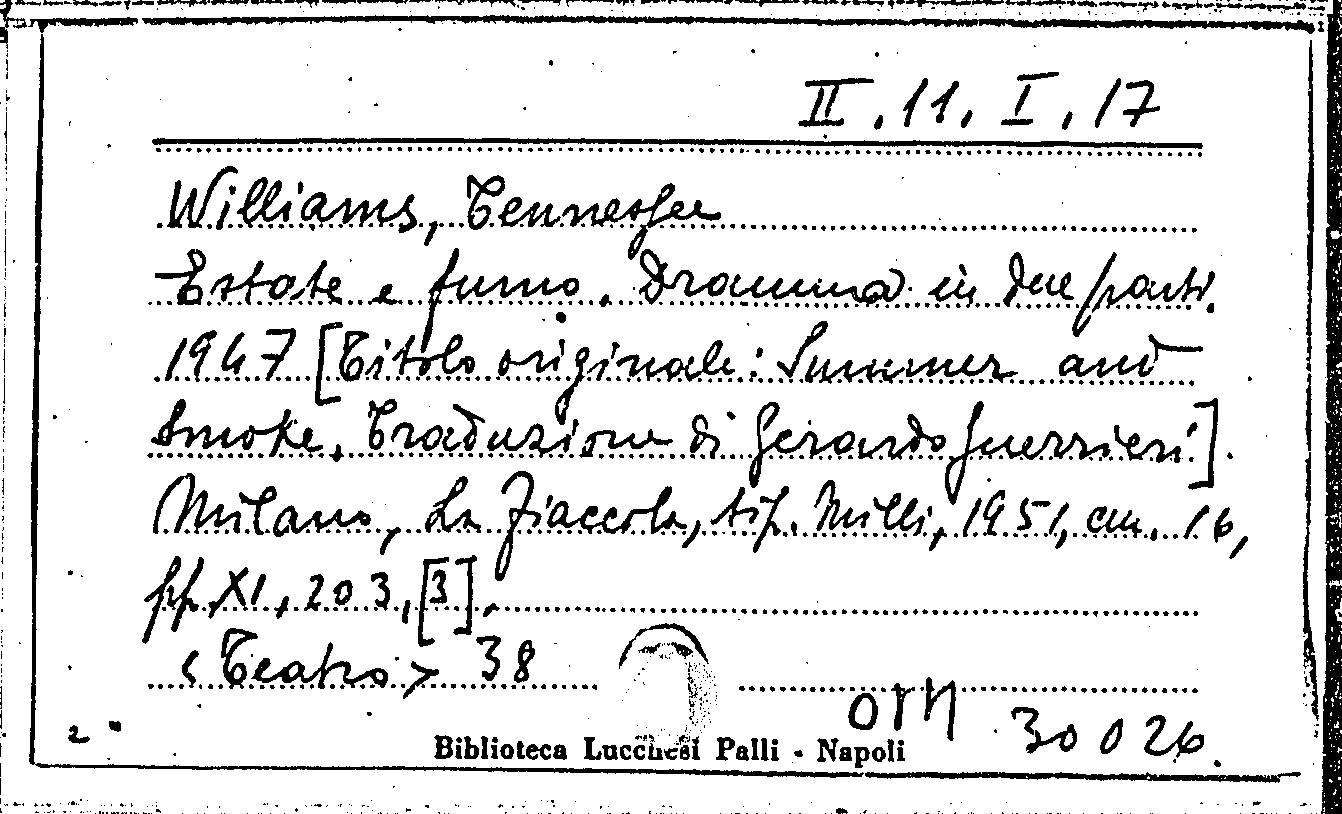 II.11.I.17
Williams, Tennessee
Estate e fumo. Dramma in due parti.
1947 [Titolo originale: Summer and
Smoke. Traduzione di Gerardo Guerrieri].
Milano, La Fiaccola, tip. Milli, 1951, cm. 16,
pp. XI, 203, [3].
<Teatro> 38
30026
2
Biblioteca Lucchesi Palli - Napoli